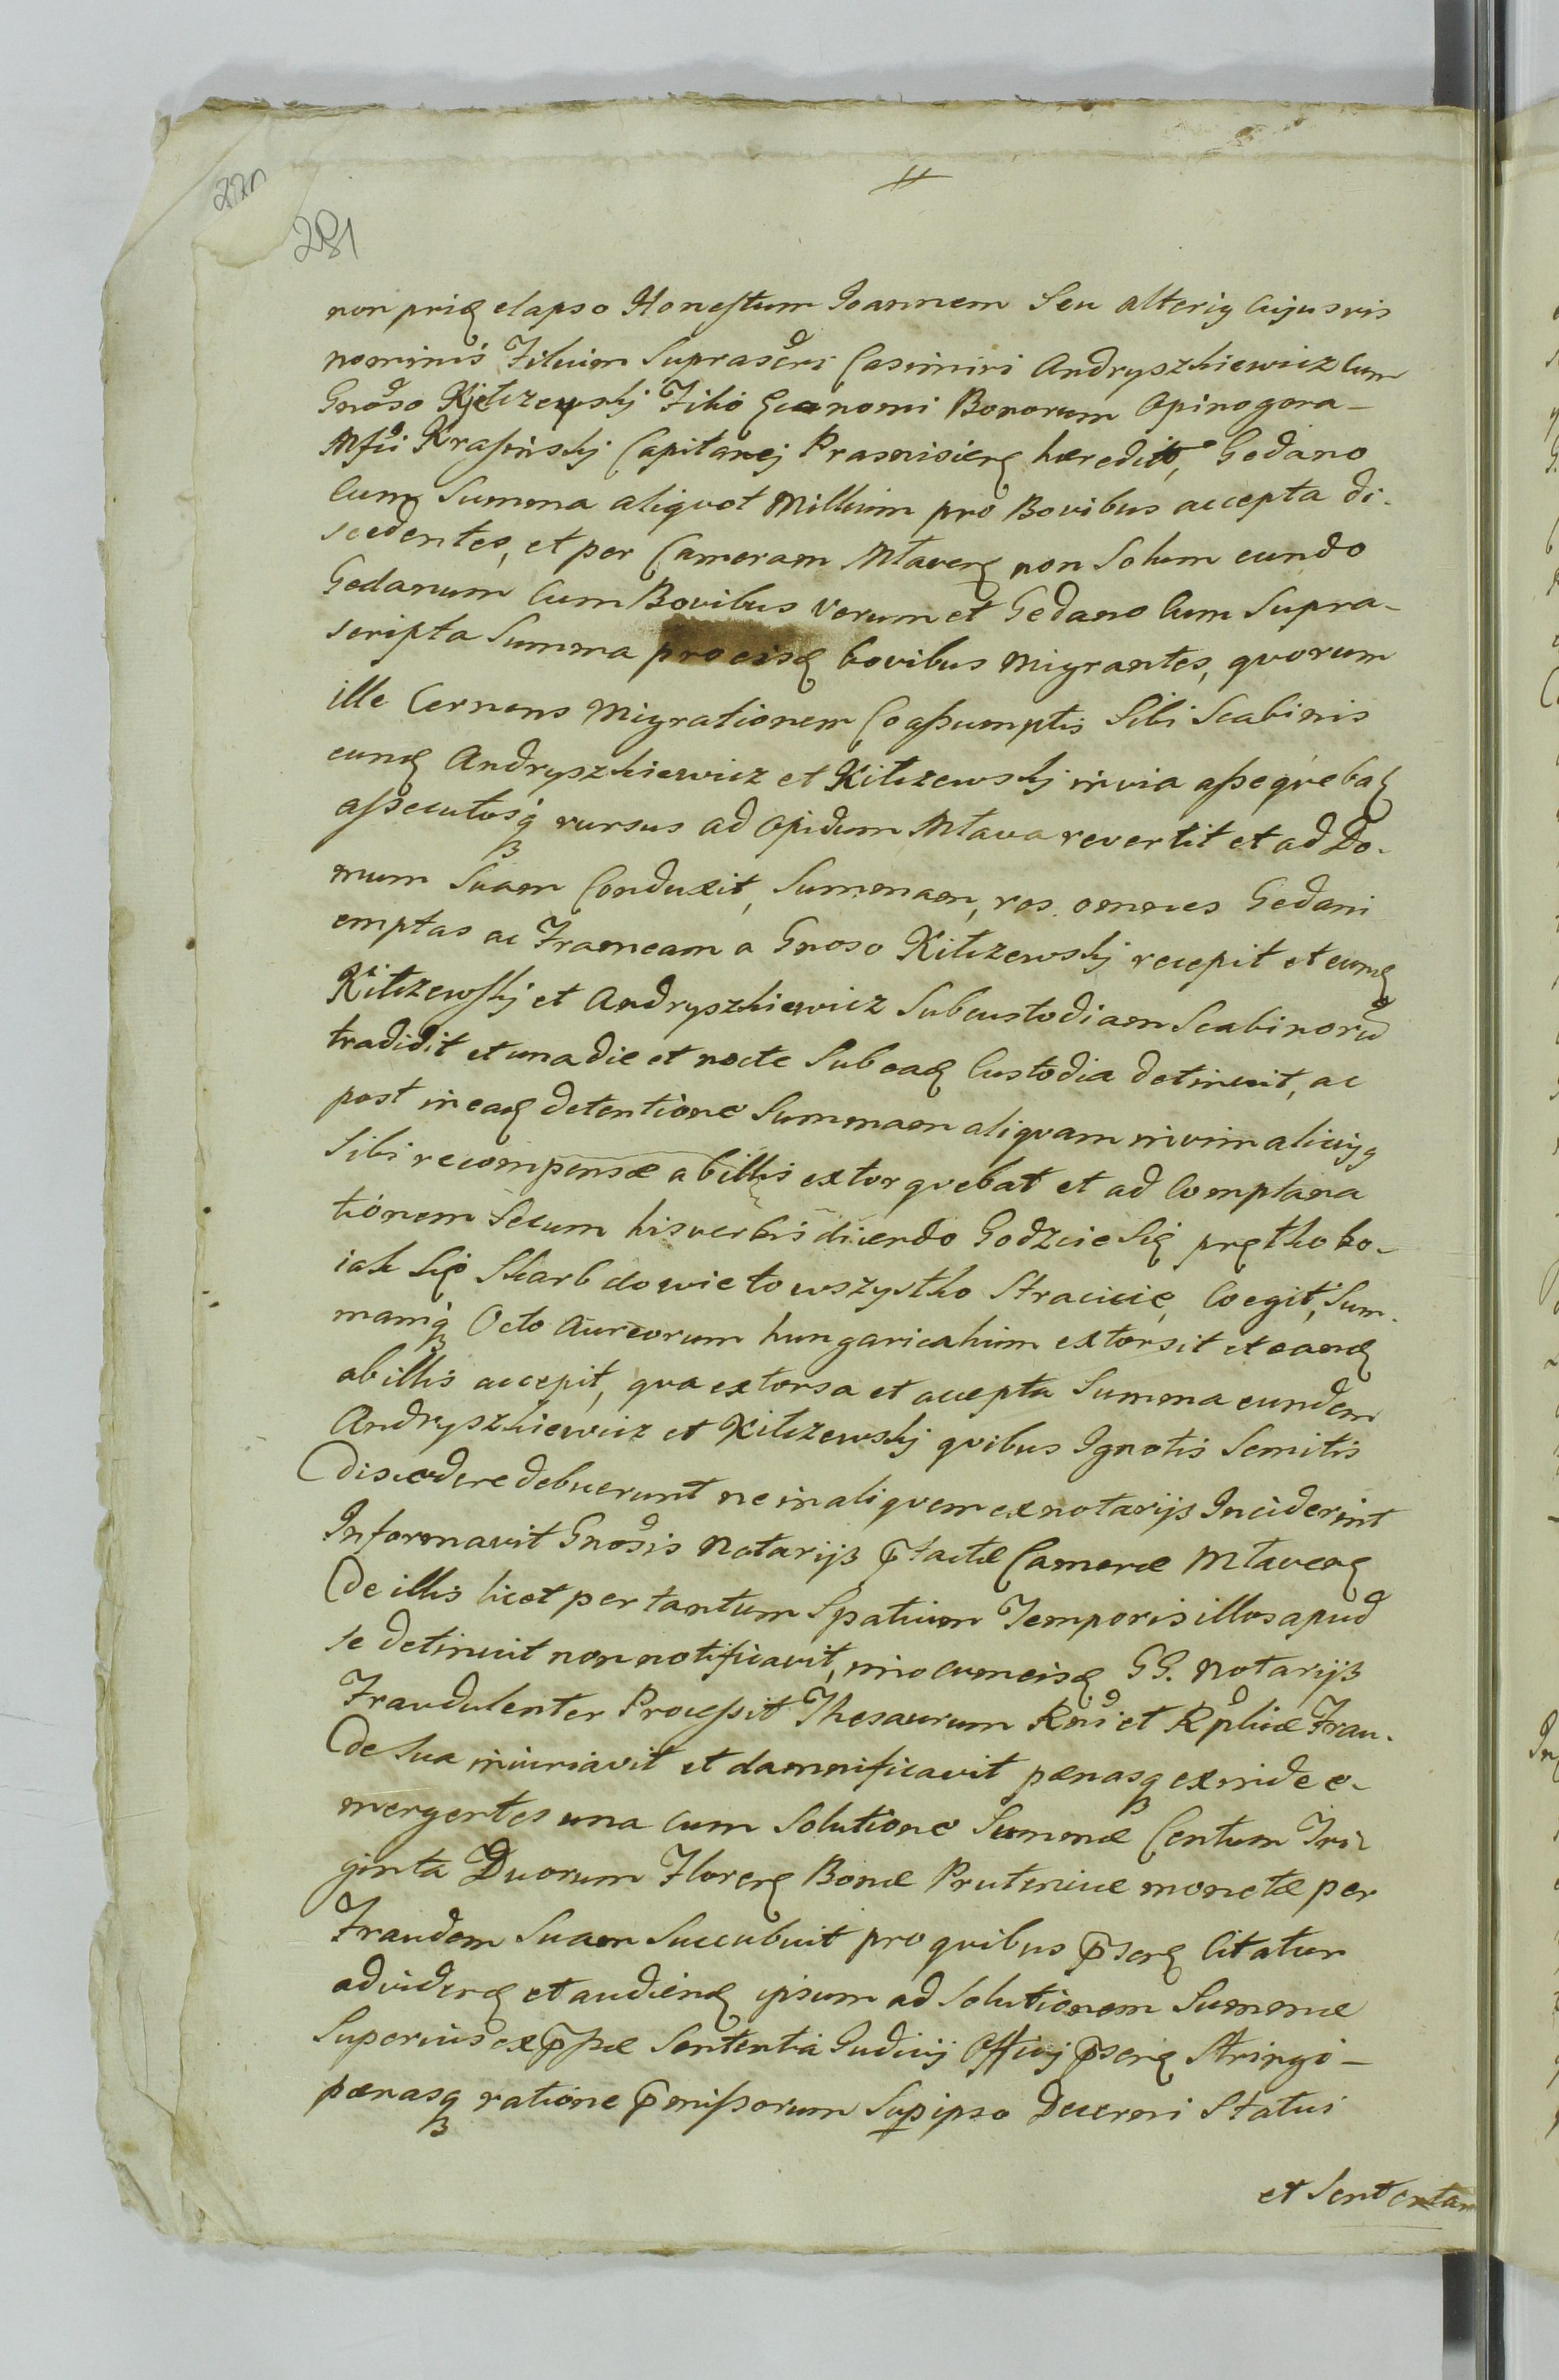 281
non priꝰ elapso Honestum Joannem Seu alteriꝰ Cujusvis
nominis Filium Suprascri Casimiri Andryszkiewicz Cum
Gnoso Kiełczewskj Filio Economi Bonorum Opinogora-
Mfci Krasinskj Capitanej Prasnisien hæredit, Gedano
Cum Summa aliquot Millium pro Bovibus accepta di-
scedentes, et per Cameram Mlaven non Solum eundo
Gedanum Cum Bovibus Verum et Gedano Cum Supra-
scripta Summa pro eisd bovibus migrantes, quorum
ille Cernens Migrationem Coassumptis Sibi Scabinis
eund Andryszkiewicz et Kiłczewskj in via assequebat
assecutosq rursus ad Opidum Mlava revertit et ad Do-
mum Suam Conduxit, Summam, res omnes Gedani
emptas ac Frameam a Gnoso Kiłczewskj recepit et eund
Kiłczewskj et Andryszkiewicz Sub custodiam Scabinoru
tradidit et una die et nocte Sub ead Custodia detinuit, ac
post in ead detentione Summam aliquam in vim alicujꝰ
Sibi recompensæ ab illis extorquebat et ad Complana
tionem Secum his verbis dicendo Godzcie Się prętko bo-
iak Się Skarb dowie to wszystko Stracicie, Coegit, Sum-
mamq Octo Aureorum hungaricalium extorsit et eand
ab illis accepit, qua extorsa et accepta Summa eundem
Andryszkiewicz et Kiłczewskj quibus Ignotis Semitis
discedere debuerunt ne in aliquem ex notarijs Inciderint
Informavit Gnosis Notarijs p̄tactæ Cameræ Mlaven
De illis licet per tantum Spatium Temporis illos apud
se detinuit non notificavit, imo cum eisd GG. Notarijs
Fraudulenter Processit Thesaurum Rni et Rplicæ Frau-
de Sua iniuriavit et damnificavit pœnasq exinde e-
mergentes una cum Solutione Summæ Centum Tri-
ginta Duorum Floren Bonæ Prutenicæ monetæ per
Fraudem Suam Succubuit pro quibus p̄sens Citatur
ad videnđ et audienđ ipsum ad Solutionem Summæ
Superius exp̄ssæ Sententia Judicij Officij p̄sens Stringi-
pœnasq ratione p̄missorum Sup ipso Decerni Statui
et Sententiam